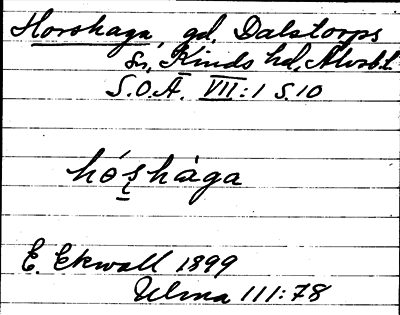 Horshaga, gd, Dalstorps
sn, Kinds hd, Älvsb.l.
S.O.Ä. VII:1 s.10
hó̤ʂhàga
E. Ekwall 1899
Ulma 111:78